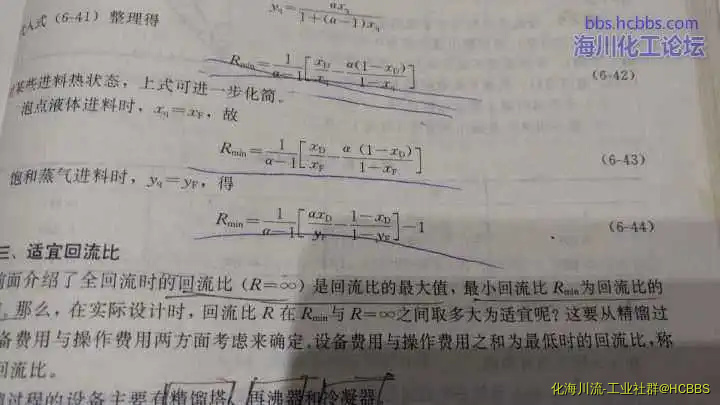 bbs.hcbbs.com
海川化工论坛
式(6-41)整理得
y_q = αx_q / 1+(α−1)x_q
R_min = 1/(α−1) [x_D/x_q − α(1−x_D)/(1−x_q)] (6-42)
某些进料热状态，上式可进一步化简。
泡点液体进料时，x_q=x_F，故
R_min = 1/(α−1) [x_D/x_F − α(1−x_D)/(1−x_F)] (6-43)
饱和蒸气进料时，y_q=y_F，得
R_min = 1/(α−1) [αx_D/y_F − (1−x_D)/(1−y_F)] −1 (6-44)
三、适宜回流比
前面介绍了全回流时的回流比（R=∞）是回流比的最大值，最小回流比 R_min为回流比的
那么，在实际设计时，回流比 R 在 R_min与 R=∞之间取多大为适宜呢？这要从精馏过
备费用与操作费用两方面考虑来确定。设备费用与操作费用之和为最低时的回流比，称
回流比。
过程的设备主要有精馏塔、再沸器和冷凝器。
化海川流-工业社群@HCBBS